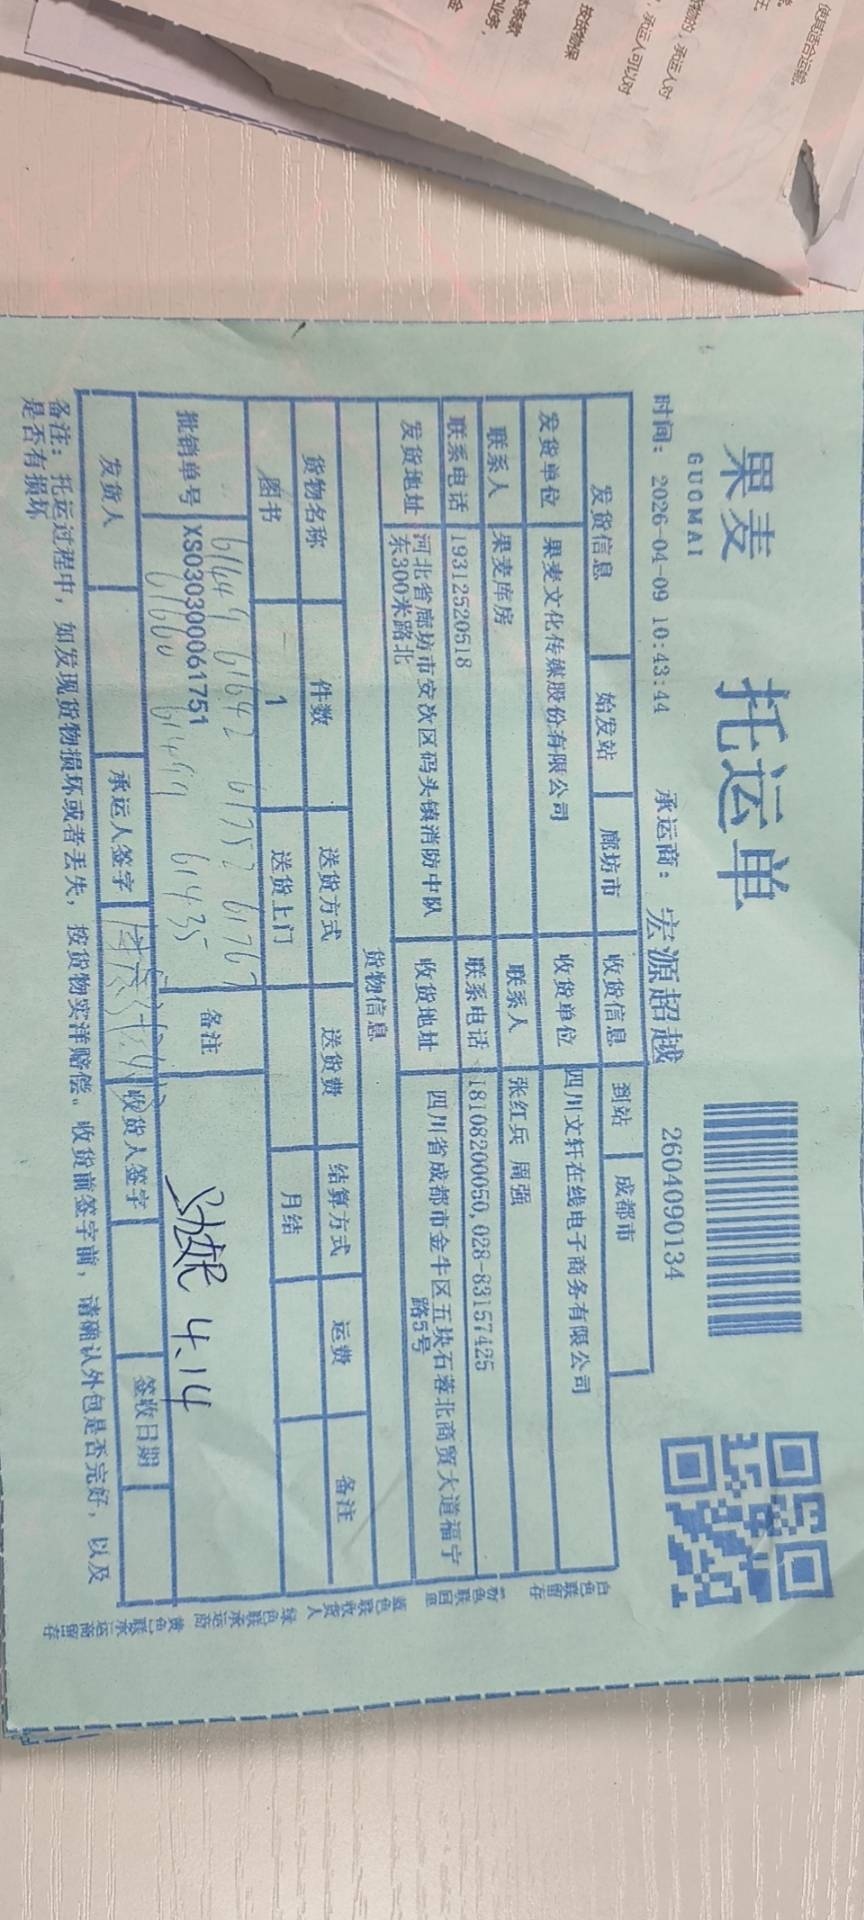 果麦
GUOMAI
托运单
时间: 2026-04-09 10:43:44
承运商: 宏源超越
2604090134
发货信息 始发站 廊坊市 收货信息 到站 成都市
发货单位 果麦文化传媒股份有限公司 收货单位 四川文轩在线电子商务有限公司
联系人 果麦库房 联系人 张红兵 周强
联系电话 19312520518 联系电话 18108200050,028-83157425
发货地址 河北省廊坊市安次区码头镇消防中队东300米路北 收货地址 四川省成都市金牛区五块石蓉北商贸大道福宁路5号
货物信息
货物名称 件数 送货方式 送货费 结算方式 运费 备注
图书 1 送货上门 月结
批销单号 XS030300061751 备注
61642 61352
61600 61499 61435
4.14
发货人 承运人签字 收货人签字 签收日期
备注: 托运过程中, 如发现货物损坏或者丢失, 按货物实洋赔偿。收货前签字前, 请确认外包是否完好, 以及
是否有损坏
白色联留存
粉色联回单
蓝色联收货人
绿色联承运商
黄色联承运商留存
使其适合运输
承运人对
承运人可以对